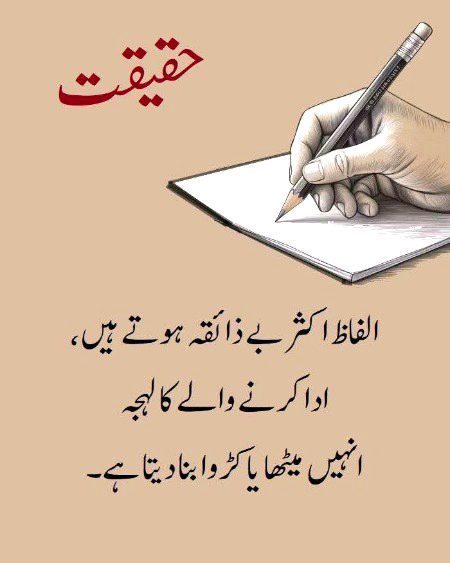 حقیقت
الفاظ اکثر بے ذائقہ ہوتے ہیں،
ادا کرنے والے کا لہجہ
انہیں میٹھا یا کڑوا بنا دیتا ہے۔